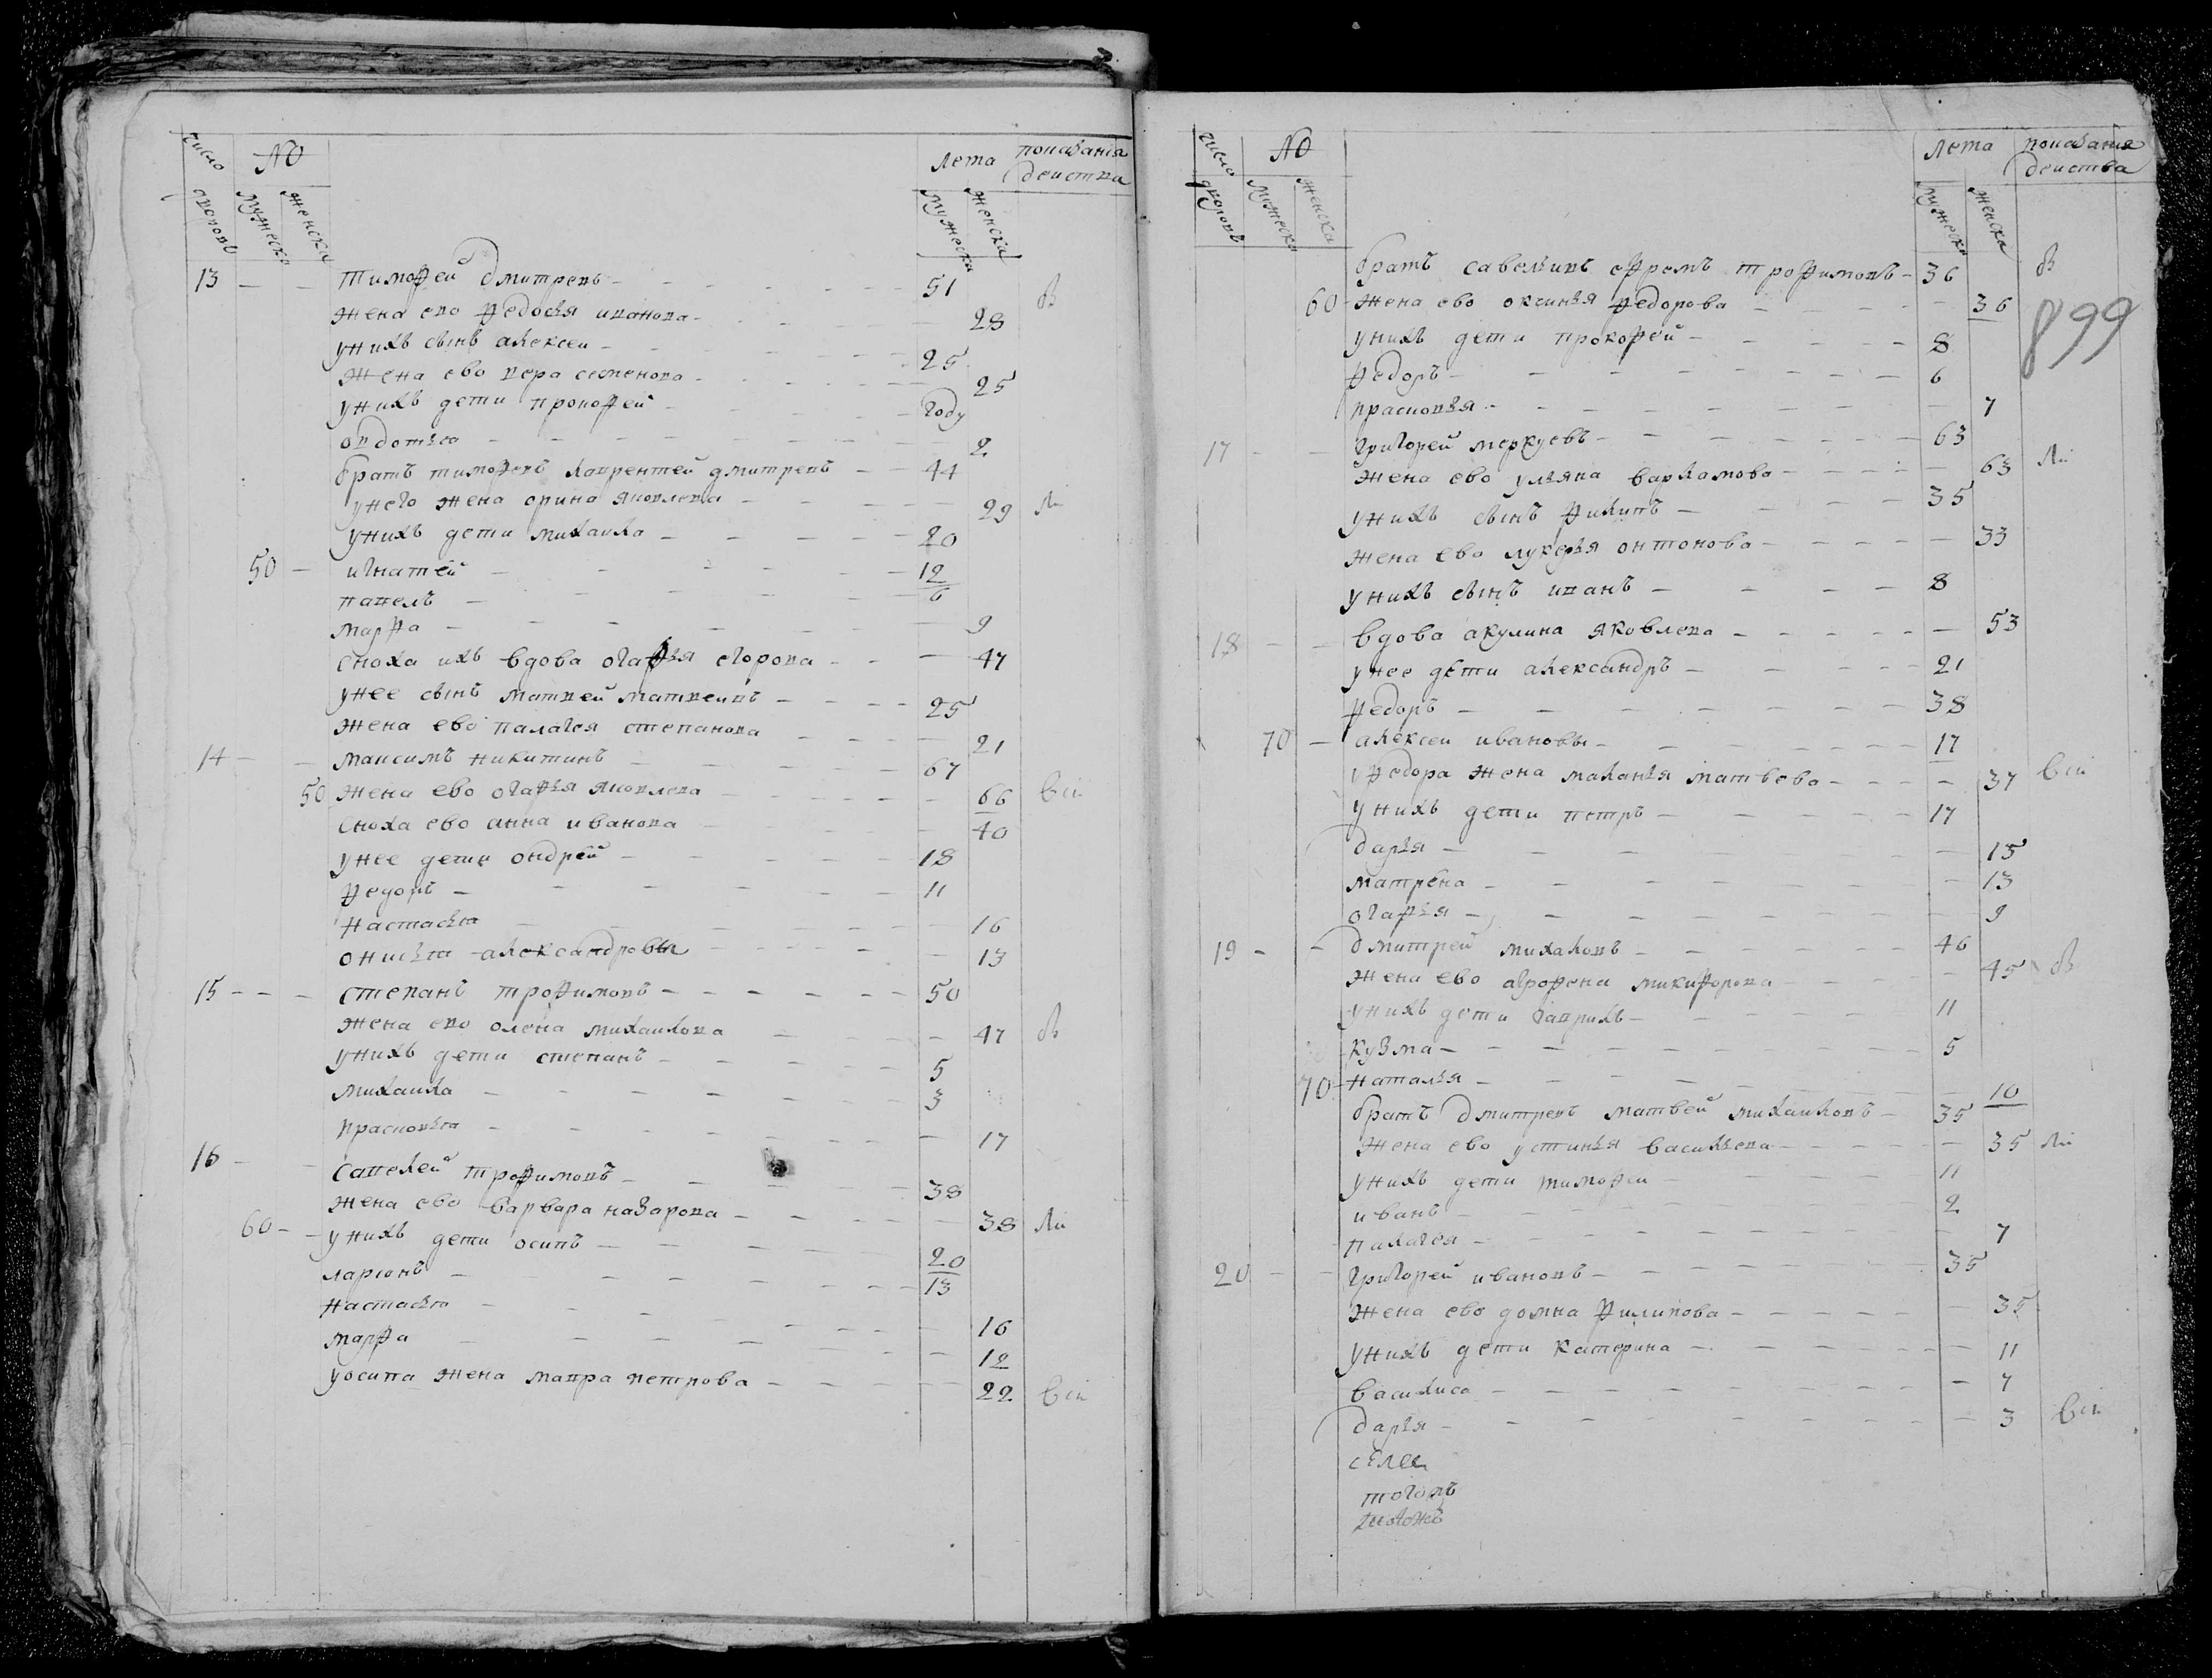 число дворовъ № мужеска женска лета мужеска женска показания действа
13 Тимофей Дмитревъ 51
жена ево Федосья иванова 28
у нихъ сынъ алексеи 25
жена ево вера семенова 25
у нихъ дети прокофей году
овдотья 2
братъ тимофевъ лаврентей дмитревъ 44
у него жена орина яковлева 29
у нихъ дети михаила 20
50 игнатей 12
павелъ 6
марфа 9
сноха ихъ вдова огафья егорова 47
у нее сынъ матвей матвеивъ 25
жена ево палагея степанова 21
14 максимъ никитинъ 67
50 жена ево огафья яковлева 66
сноха ево анна иванова 40
у нее дети ондрей 18
федоръ 11
настасья 16
онисья александровы 13
15 степанъ трофимовъ 50
жена ево олена михаилова 47
у нихъ дети степанъ 5
михаила 3
прасковья 17
16 савелей трофимовъ 38
жена ево варвара назарова 38
60 у нихъ дети осипъ 20
ларионъ 13
настасья 16
марфа 12
у осипа жена мавра петрова 22
число дворовъ № мужеска женска лета мужеска женска показания действа
братъ савельивъ ефремъ трофимовъ 36
899
60 жена ево оксинья федорова 36
у нихъ дети прокофей 8
федоръ 6
прасковья 7
17 григорей меркуевъ 63
жена ево ульяна варламова 63
у нихъ сынъ филипъ 35
жена ево лукерья онтонова 33
у нихъ сынъ иванъ 8
18 вдова акулина яковлева 53
у нее дети александръ 21
федоръ 38
70 алексеи ивановы 17
у федора жена маланья матвеева 37
у нихъ дети петръ 17
дарья 15
матрена 13
огафья 9
19 дмитрей михаловъ 46
жена ево аграфена микифорова 45
у нихъ дети гаврилъ 11
кузма 5
70 наталья 10
братъ дмитревъ матвей михаиловъ 35
жена ево устинья васильева 35
у нихъ дети тимофеи 11
иванъ 2
палагея 7
20 григорей ивановъ 35
жена ево домна филипова 35
у нихъ дети катерина 11
василиса 7
дарья 3